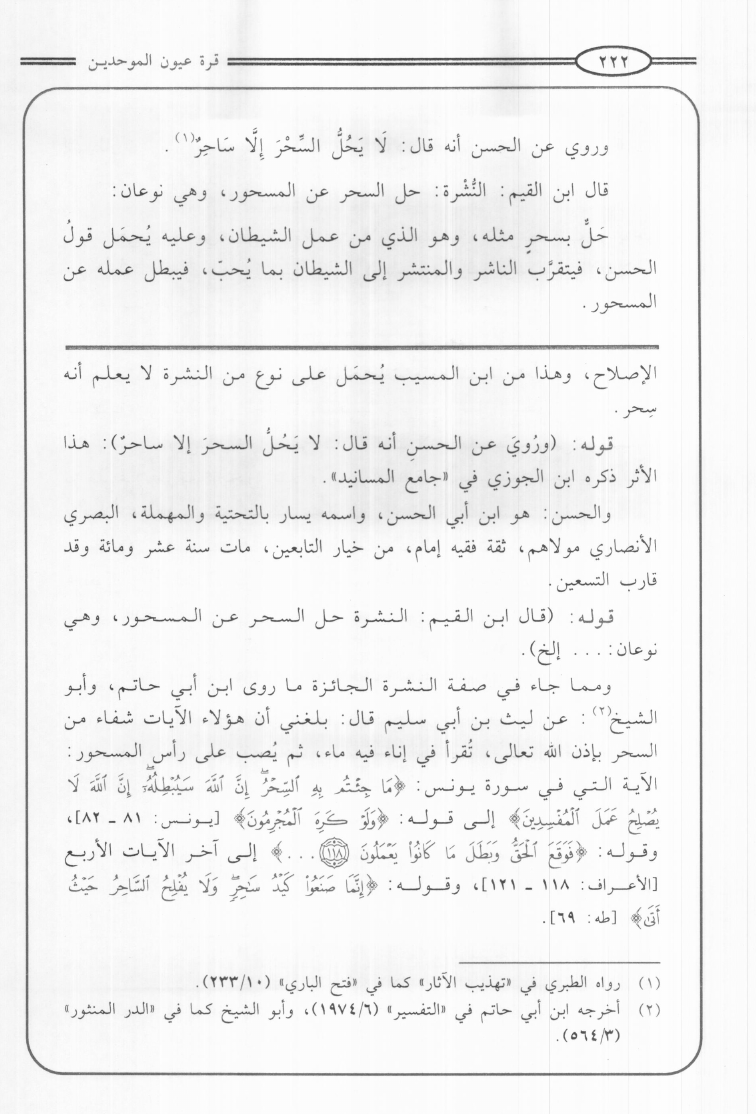 ٢٢٢
قرة عيون الموحدين
وروي عن الحسن أنه قال: لَا يَحُلُّ السِّحْرَ إِلَّا سَاحِرٌ(١).
قال ابن القيم: النُّشْرة: حل السحر عن المسحور، وهي نوعان:
حَلٌّ بسحرٍ مثله، وهو الذي من عمل الشيطان، وعليه يُحمَل قولُ
الحسن، فيتقرَّب الناشر والمنتشر إلى الشيطان بما يُحبّ، فيبطل عمله عن
المسحور.
الإصلاح، وهذا من ابن المسيب يُحمَل على نوع من النشرة لا يعلم أنه
سِحر.
قوله: (ورُويَ عن الحسنِ أنه قال: لا يَحُلُّ السحرَ إلا ساحرٌ): هذا
الأثر ذكره ابن الجوزي في «جامع المسانيد».
والحسن: هو ابن أبي الحسن، واسمه يسار بالتحتية والمهملة، البصري
الأنصاري مولاهم، ثقة فقيه إمام، من خيار التابعين، مات سنة عشر ومائة وقد
قارب التسعين.
قوله: (قال ابن القيم: النشرة حل السحر عن المسحور، وهي
نوعان: ... إلخ).
ومما جاء في صفة النشرة الجائزة ما روى ابن أبي حاتم، وأبو
الشيخ(٢): عن ليث بن أبي سليم قال: بلغني أن هؤلاء الآيات شفاء من
السحر بإذن الله تعالى، تُقرأ في إناء فيه ماء، ثم يُصب على رأس المسحور:
الآية التي في سورة يونس: ﴿مَا جِئْتُم بِهِ ٱلسِّحْرُۖ إِنَّ ٱللَّهَ سَيُبْطِلُهُۥٓۖ إِنَّ ٱللَّهَ لَا
يُصْلِحُ عَمَلَ ٱلْمُفْسِدِينَ﴾ إلى قوله: ﴿وَلَوْ كَرِهَ ٱلْمُجْرِمُونَ﴾ [يونس: ٨١ ـ ٨٢]،
وقوله: ﴿فَوَقَعَ ٱلْحَقُّ وَبَطَلَ مَا كَانُوا۟ يَعْمَلُونَ ١١٨ ...﴾ إلى آخر الآيات الأربع
[الأعراف: ١١٨ ـ ١٢١]، وقوله: ﴿إِنَّمَا صَنَعُوا۟ كَيْدُ سَٰحِرٍۖ وَلَا يُفْلِحُ ٱلسَّاحِرُ حَيْثُ
أَتَىٰ﴾ [طه: ٦٩].
(١) رواه الطبري في «تهذيب الآثار» كما في «فتح الباري» (٢٣٣/١٠).
(٢) أخرجه ابن أبي حاتم في «التفسير» (١٩٧٤/٦)، وأبو الشيخ كما في «الدر المنثور»
(٥٦٤/٣).